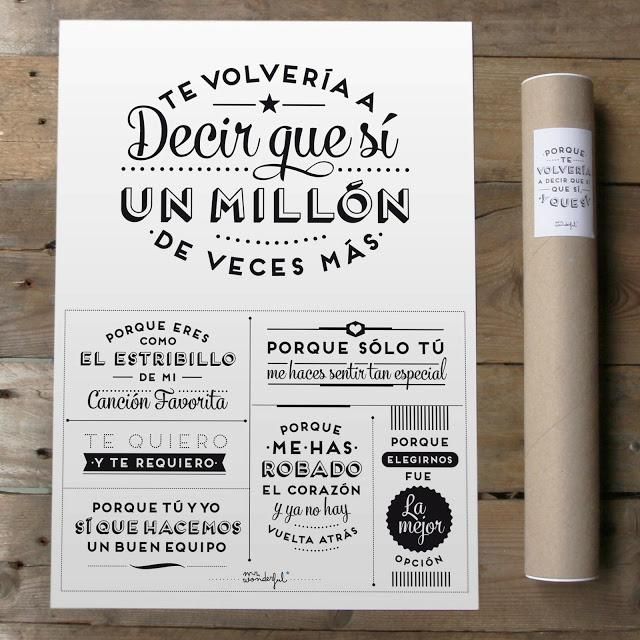 TE VOLVERÍA A
Decir que sí
UN MILLÓN
DE VECES MÁS
PORQUE ERES
COMO
EL ESTRIBILLO
DE MI
Canción Favorita
TE QUIERO
Y TE REQUIERO
PORQUE TÚ Y YO
SÍ QUE HACEMOS
UN BUEN EQUIPO
PORQUE SÓLO TÚ
me haces sentir tan especial
PORQUE
ME HAS
ROBADO
EL CORAZÓN
y ya no hay
VUELTA ATRÁS
PORQUE
ELEGIRNOS
FUE
La
mejor
OPCIÓN
mr.
wonderful*
PORQUE
TE
VOLVERÍA
A DECIR QUE SÍ
QUE SÍ,
Y QUE SÍ
mr.
wonderful*